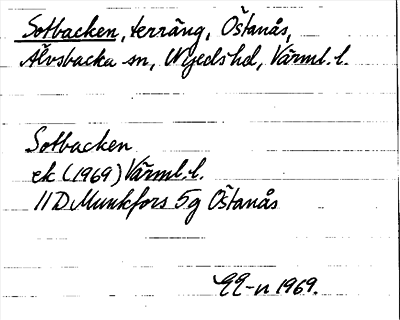 Sotbacken, terräng, Östanås,
Älvsbacka sn, Nyeds hd, Värml. l.
Sotbacken
ek (1969) Värml. l.
11D Munkfors 5g Östanås
-n 1969.